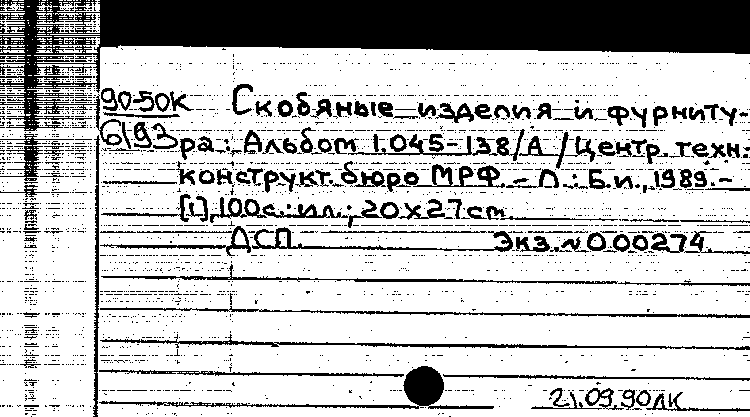 90-50К Скобяные изделия и фурниту-
6193 ра: Альбом 1.045-138/А / Центр. техн.
конструкт. бюро МРФ. - Л.: Б.и., 1989. -
[1], 100с.: ил.; 20х27см.
ДСП. Экз. № 000274.
21.09.90лк